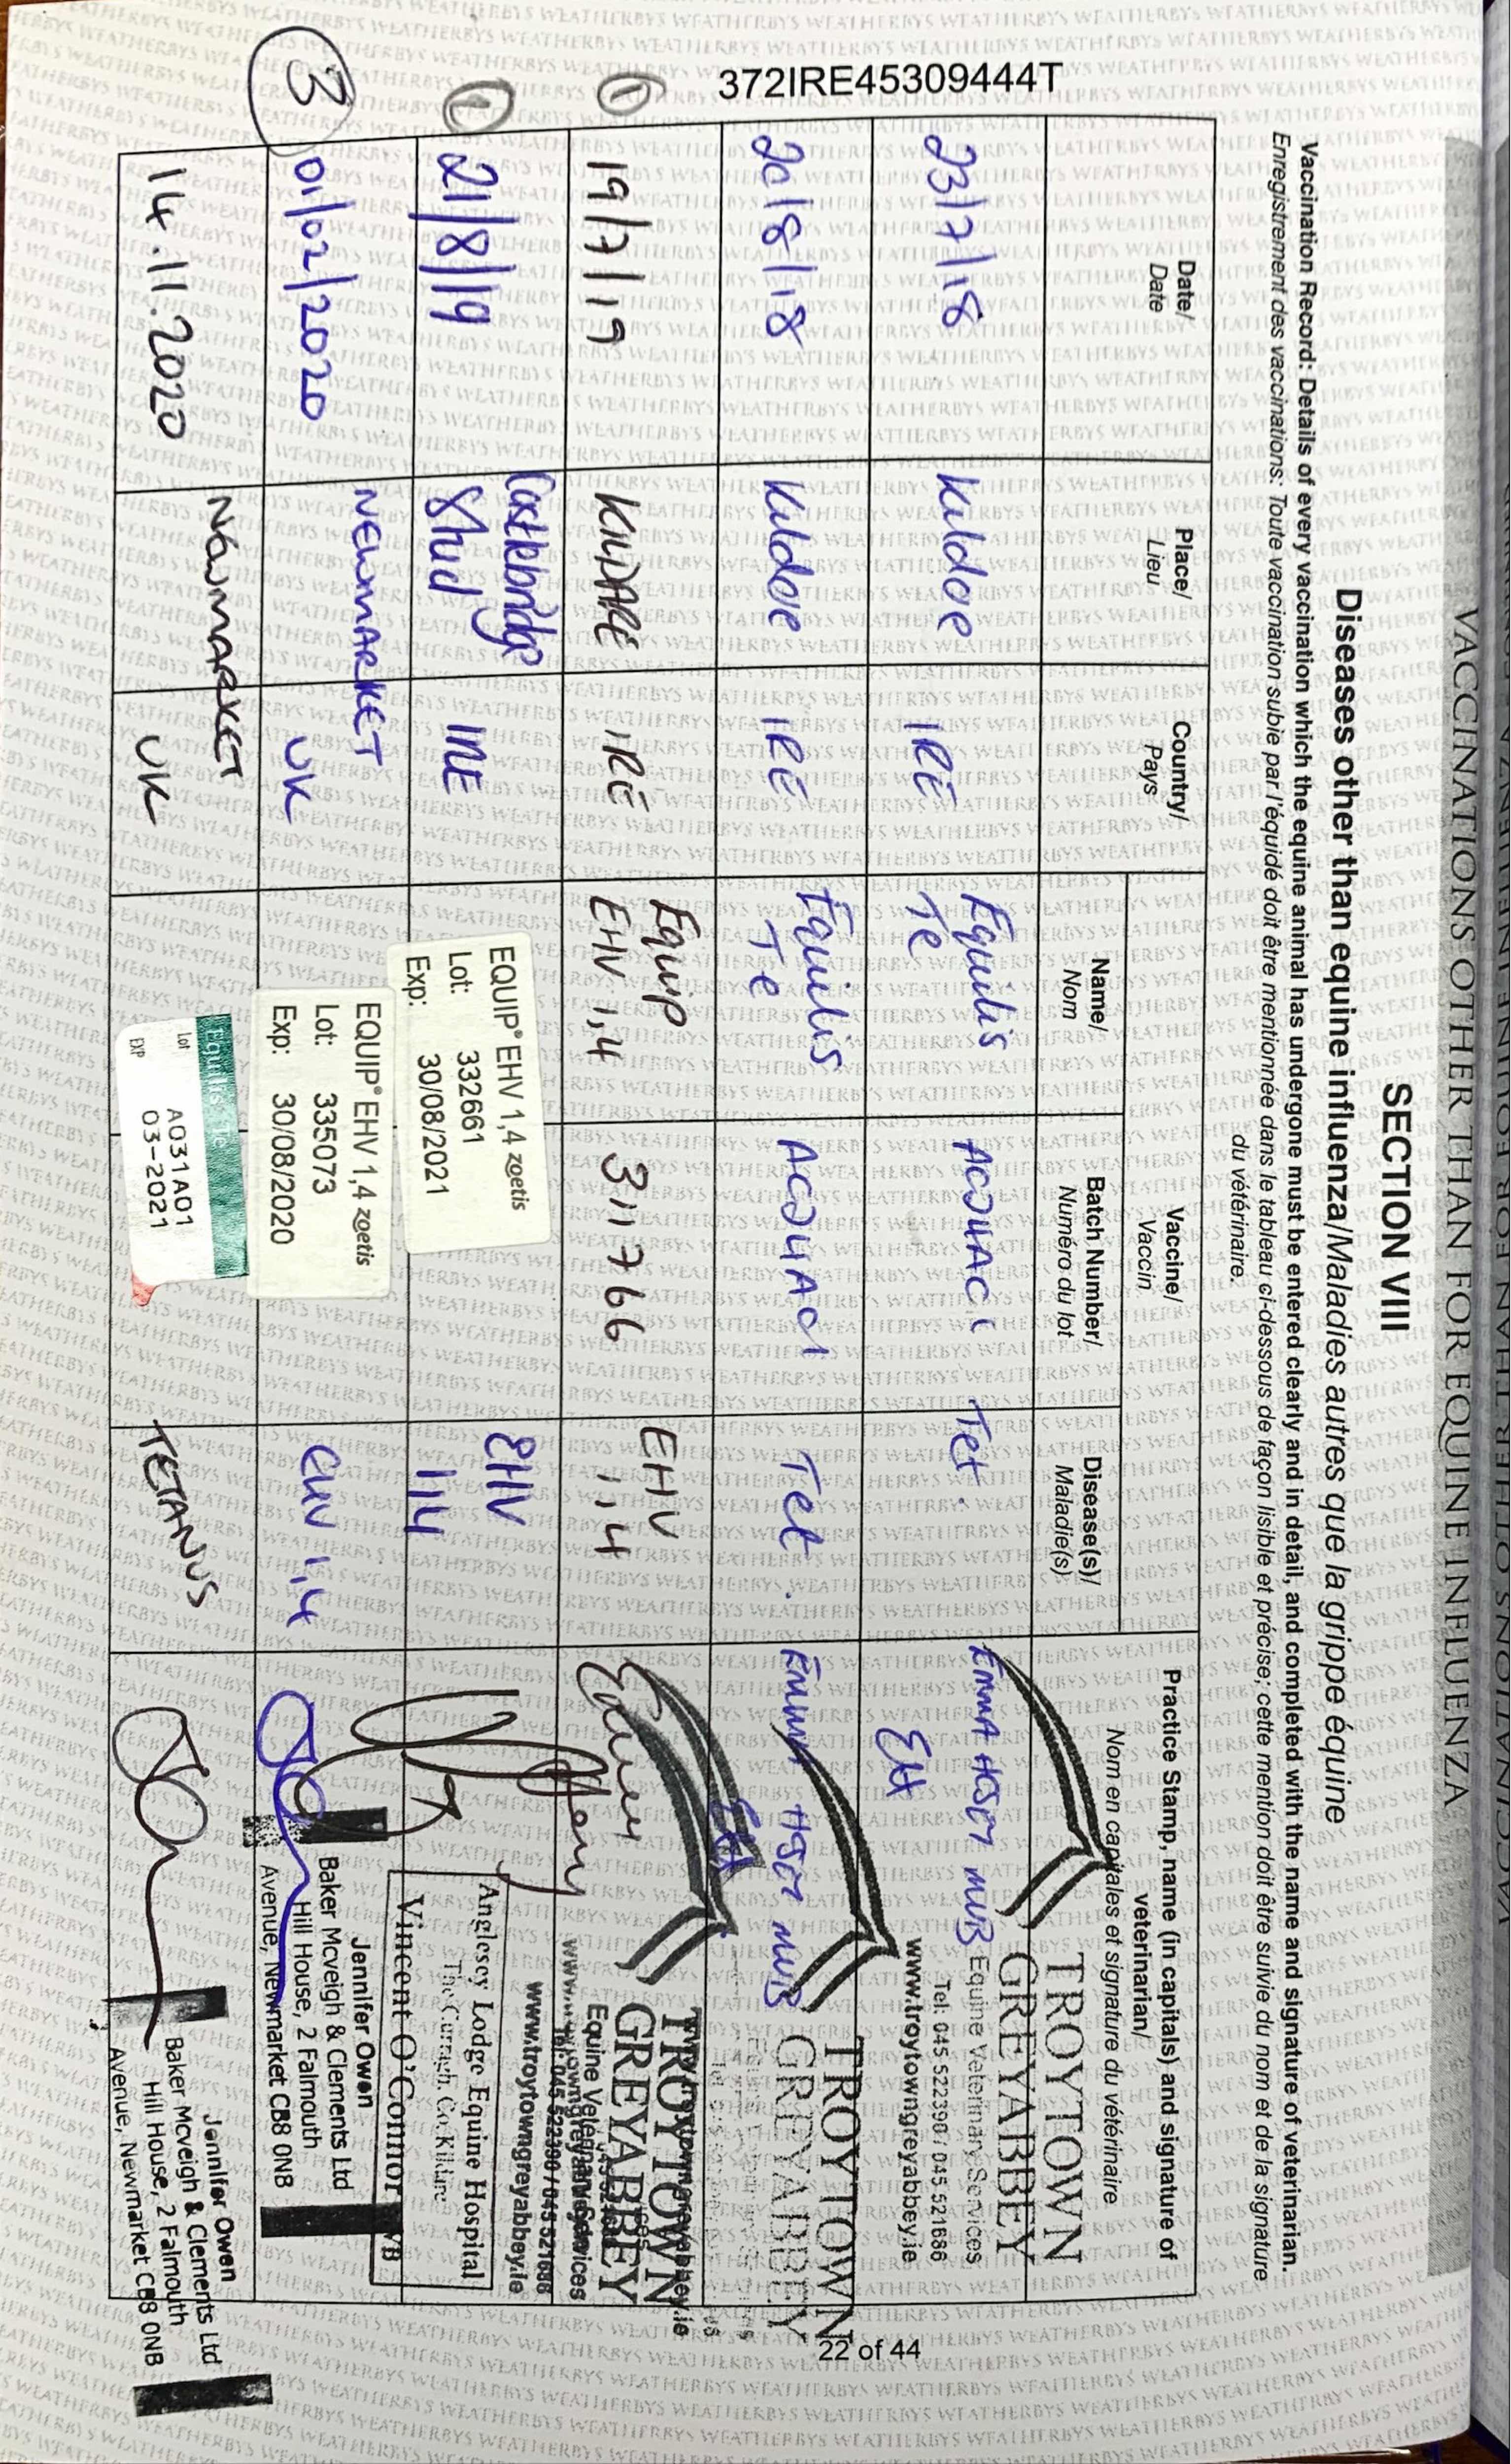 VACCINATIONS OTHER THAN FOR EQUINE INFLUENZA
SECTION VIII
Diseases other than equine influenza/Maladies autres que la grippe équine
Vaccination Record: Details of every vaccination which the equine animal has undergone must be entered clearly and in detail, and completed with the name and signature of veterinarian.
Enregistrement des vaccinations: Toute vaccination subie par l'équidé doit être mentionnée dans le tableau ci-dessous de façon lisible et précise; cette mention doit être suivie du nom et de la signature
du vétérinaire.
372IRE45309444T
22 of 44
Date/
Date
Place/
Lieu
Country/
Pays
Vaccine/
Vaccin
Name/
Nom
Batch Number/
Numéro du lot
Disease(s)/
Maladie(s)
Practice Stamp, name (in capitals) and signature of
veterinarian/
Nom en capitales et signature du vétérinaire
23/7/18
Kildare
IRE
Equilis
Te
Tet.
EMMA
MVB
EH
TROYTOWN
GREYABBEY
Equine Veterinary Services
Tel: 045 522390 / 045 521686
www.troytowngreyabbey.ie
20/8/18
Kildare
IRE
Equilis
Te
Tet.
MVB
TROYTOWN
GREYABBEY
1
19/7/19
KILDARE
IRE
Equip
EHV 1,4
311766
EHV
1,4
TROYTOWN
GREYABBEY
Equine Veterinary Services
www.troytowngreyabbey.ie
2
21/8/19
Castlebridge
Stud
IRE
EQUIP® EHV 1,4 zoetis
Lot: 332661
Exp: 30/08/2021
EHV
1,4
Anglesey Lodge Equine Hospital
The Curragh, Co. Kildare
Vincent O'Connor MVB
3
01/02/2020
NEWMARKET
UK
EQUIP® EHV 1,4 zoetis
Lot: 335073
Exp: 30/08/2020
EHV 1,4
Jennifer Owen
Baker Mcveigh & Clements Ltd
Hill House, 2 Falmouth
Avenue, Newmarket CB8 0NB
14.11.2020
NEWMARKET
UK
Equilis Te
Lot A031A01
EXP 03-2021
TETANUS
Jennifer Owen
Baker Mcveigh & Clements Ltd
Hill House, 2 Falmouth
Avenue, Newmarket CB8 0NB